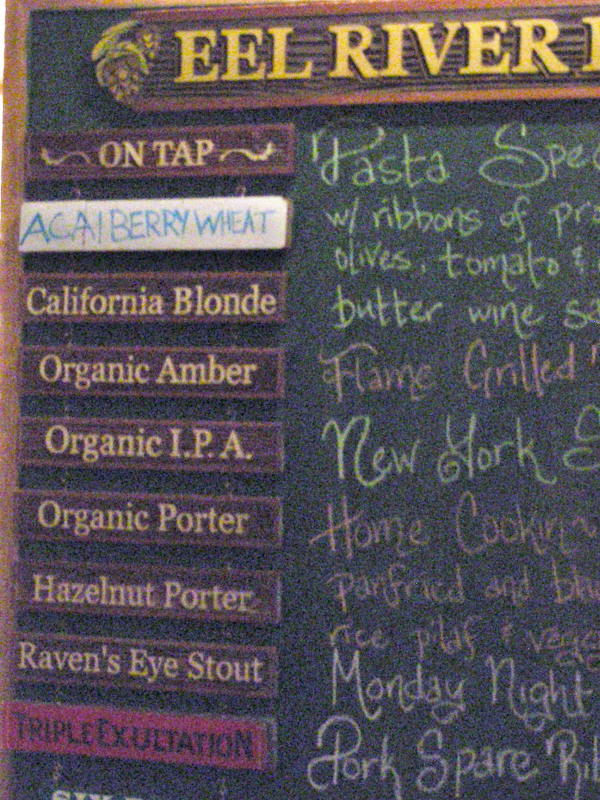 EEL RIVER
ON TAP
ACAI BERRY WHEAT
California Blonde
Organic Amber
Organic I.P.A.
Organic Porter
Hazelnut Porter
Raven's Eye Stout
TRIPLE EXULTATION
Pasta Spec
w/ ribbons of pro
olives, tomato &
butter wine sa
Flame Grilled
New York S
Home Cookin
panfried and
rice pilaf &
Monday Night
Pork Spare Rib